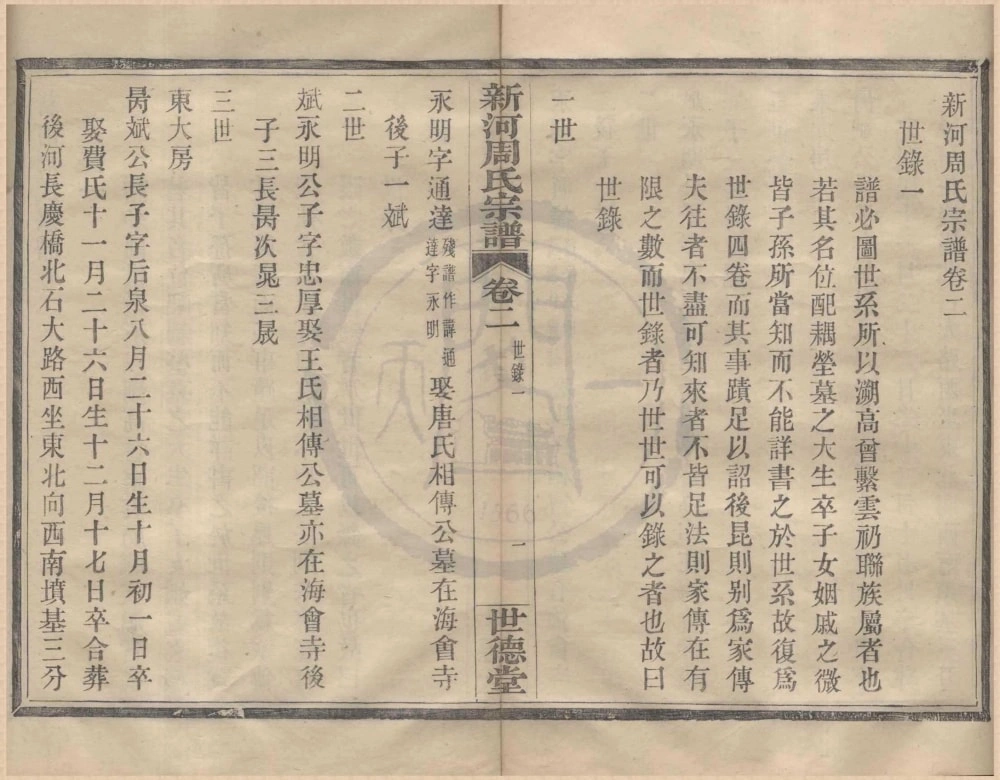 新河周氏宗譜卷二
世錄一
譜必圖世系所以溯高曾繫雲礽聯族屬者也
若其名位配耦塋墓之大生卒子女姻戚之微
皆子孫所當知而不能詳書之於世系故復爲
世錄四卷而其事蹟足以詔後昆則別爲家傳
夫往者不盡可知來者不皆足法則家傳在有
限之數而世錄者乃世世可以錄之者也故曰
世錄
一世
新河周氏宗譜 卷二 世錄一 一 世德堂
永明字通達殘譜作諱通達字永明娶唐氏相傳公墓在海會寺
後子一斌
二世
斌永明公子字忠厚娶王氏相傳公墓亦在海會寺後
子三長昺次晁三晟
三世
東大房
昺斌公長子字后泉八月二十六日生十月初一日卒
娶費氏十一月二十六日生十二月十七日卒合葬
後河長慶橋北石大路西坐東北向西南墳基三分